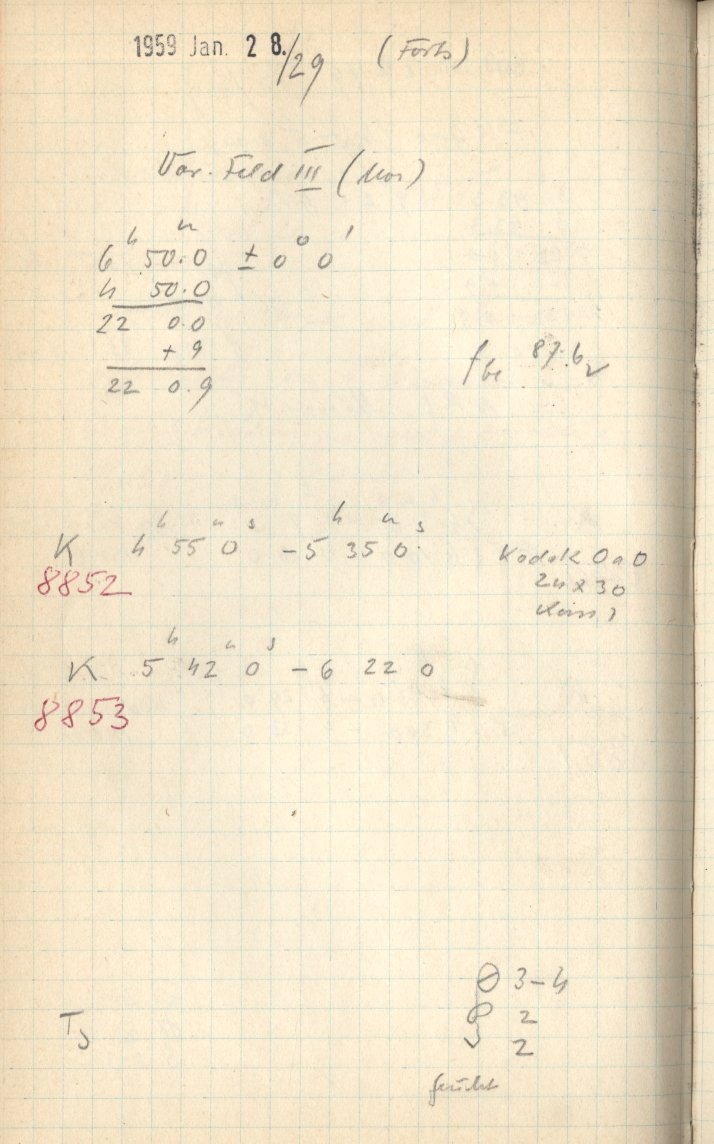 1959 Jan. 28./29 (Forts)
Var. Feld III (Mon)
6 h 50.0 m ± 0° 0'
4 50.0
22 0.0
+ 9
22 0.9
f 87.6
K 4 h 55 m 0 s - 5 h 35 m 0 s
8852
Kodak OaO
24 x 30
K 5 h 42 m 0 s - 6 22 0
8853
3-4
2
2
feucht